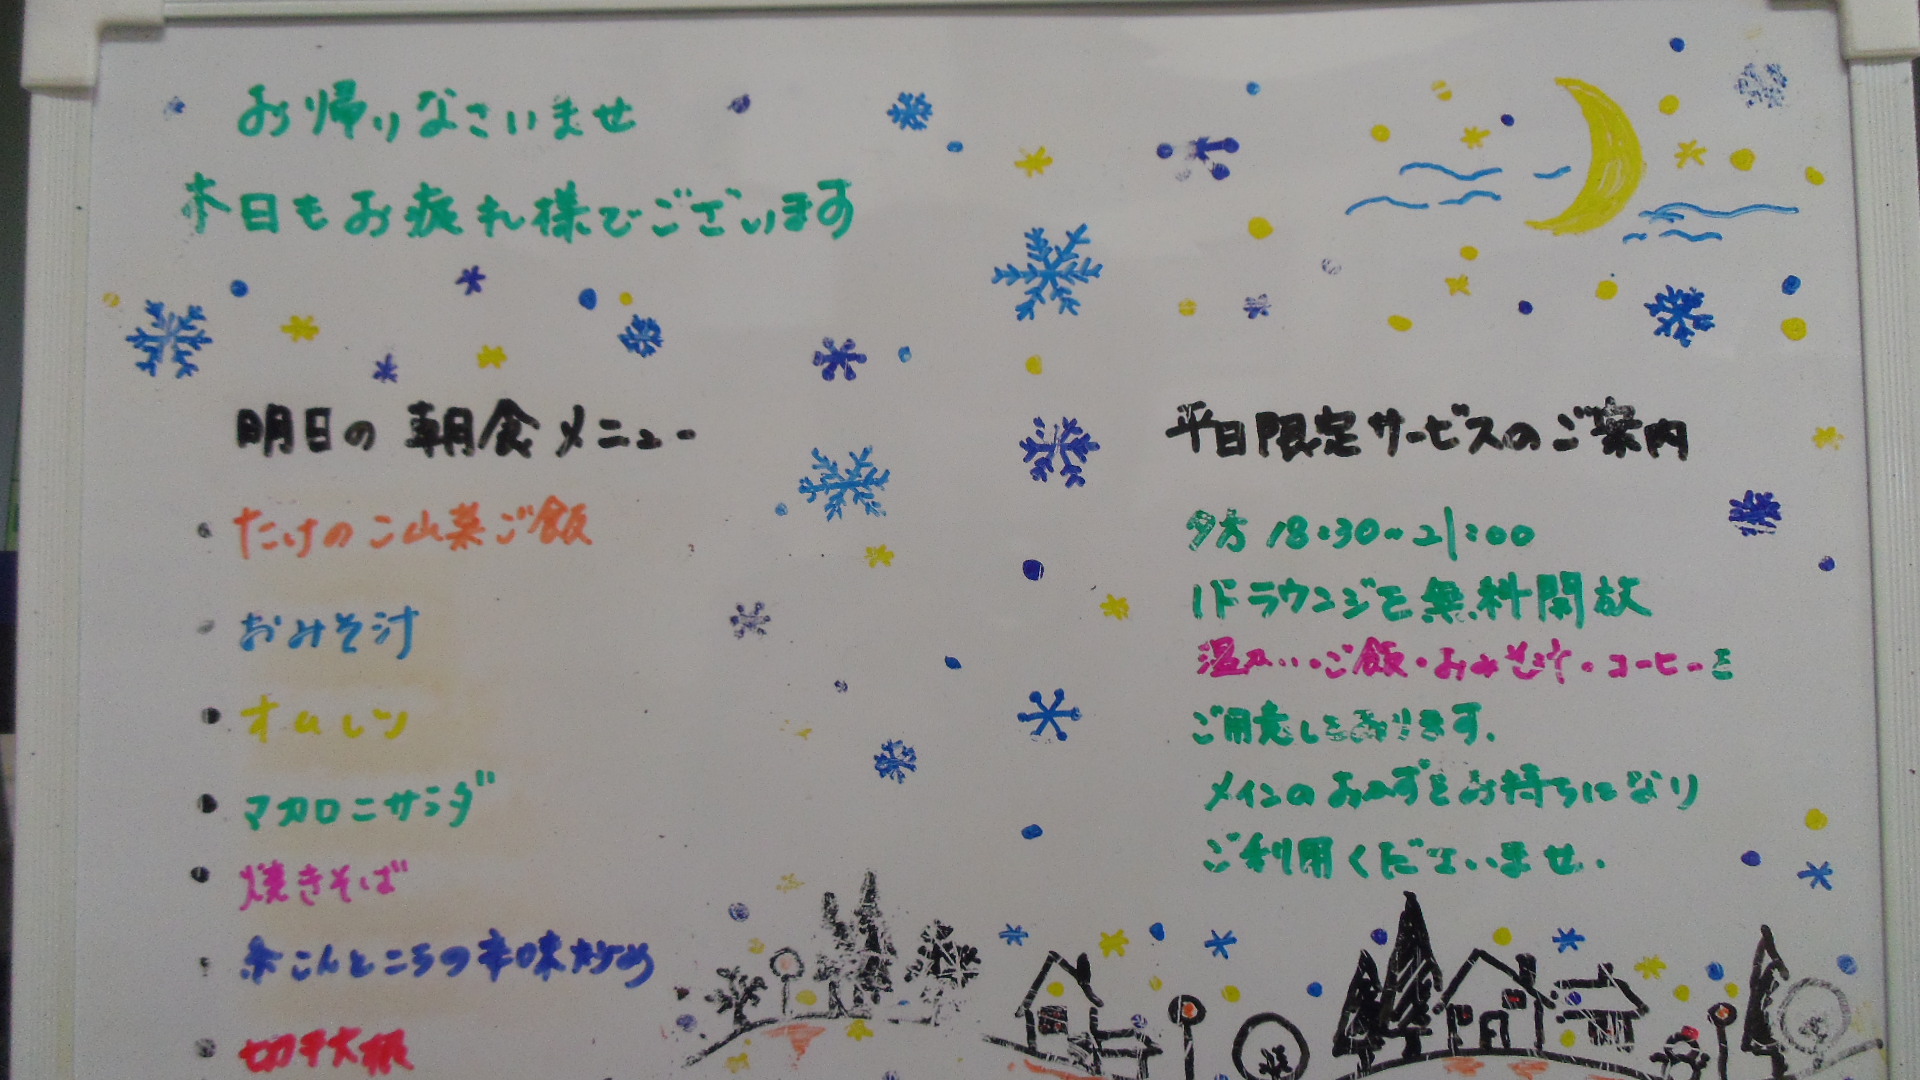 お帰りなさいませ
本日もお疲れ様でございます
明日の朝食メニュー
・たけのこ山菜ご飯
・おみそ汁
・オムレツ
・マカロニサラダ
・焼きそば
・糸こんところの辛味炒め
・切干大根
平日限定サービスのご案内
夕方 18:30~21:00
1Fラウンジを無料開放
温かい・ご飯・おみそ汁・コーヒーを
ご用意しております。
メインのおかずをお持ちになり
ご利用くださいませ。